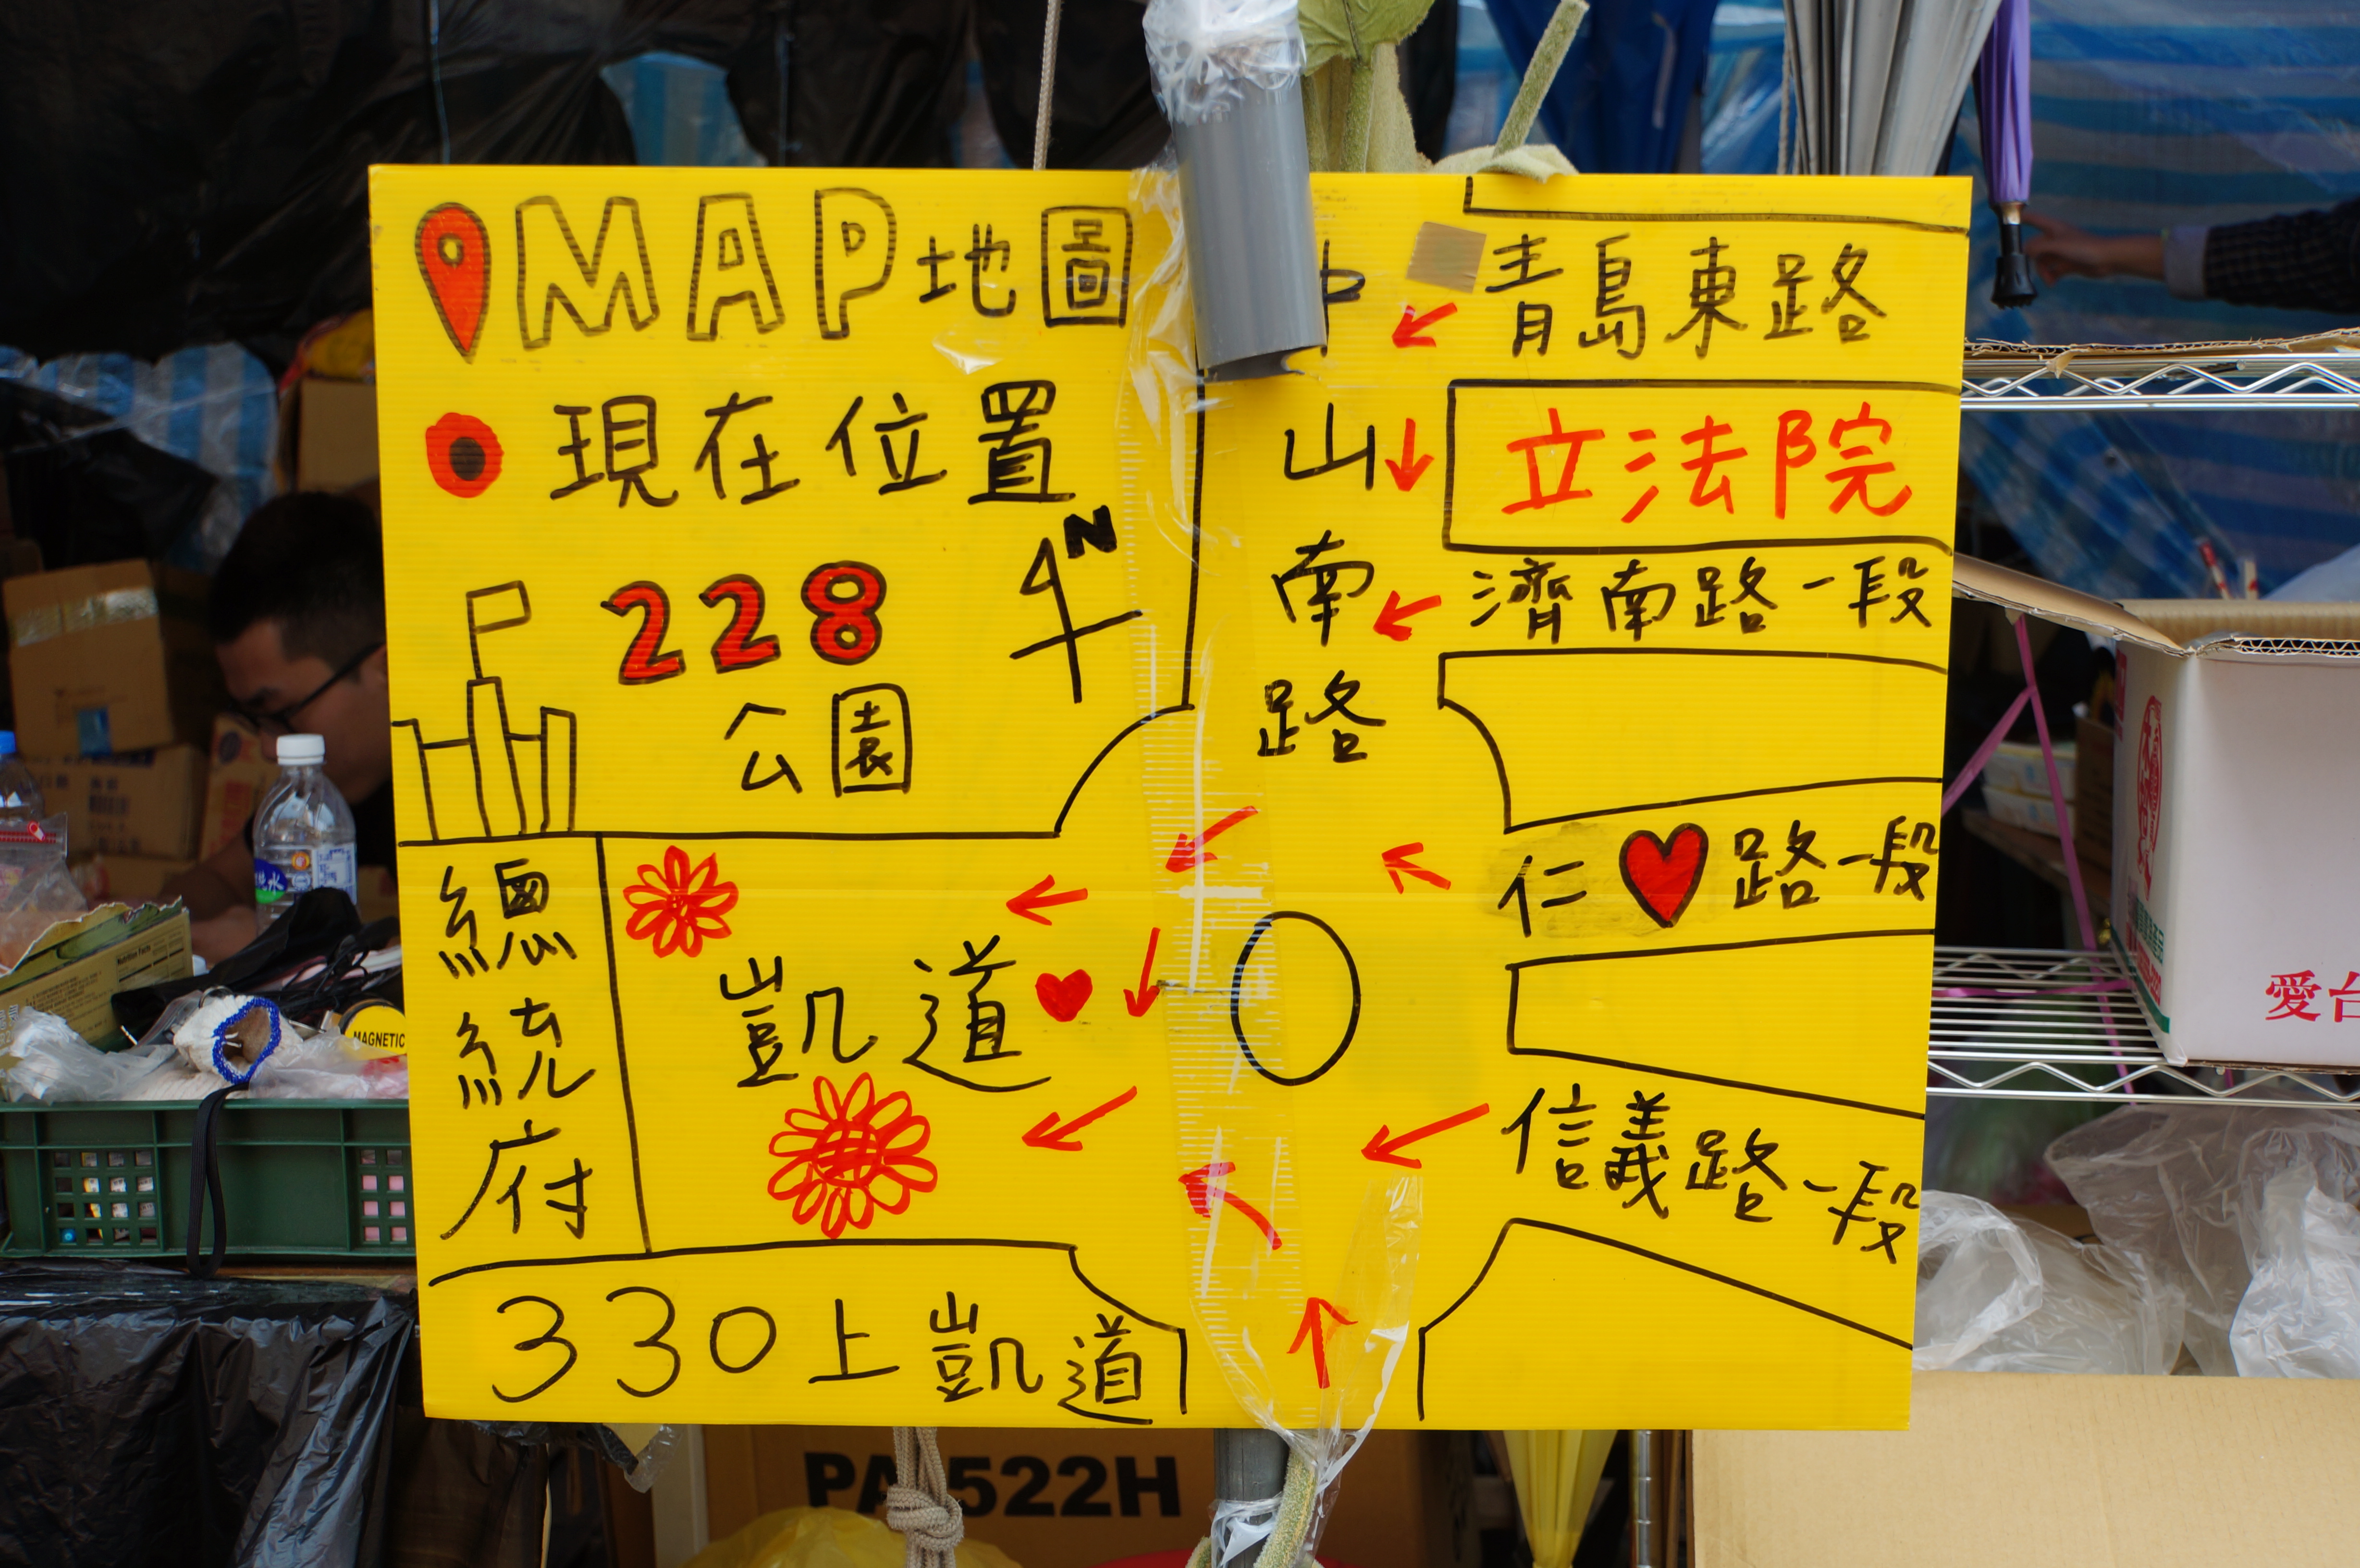 MAP地圖
現在位置
N
228
公園
總統府
凱道
330上凱道
中山南路
青島東路
立法院
濟南路一段
仁路一段
信義路一段
MAGNETIC
PA 522H
愛台